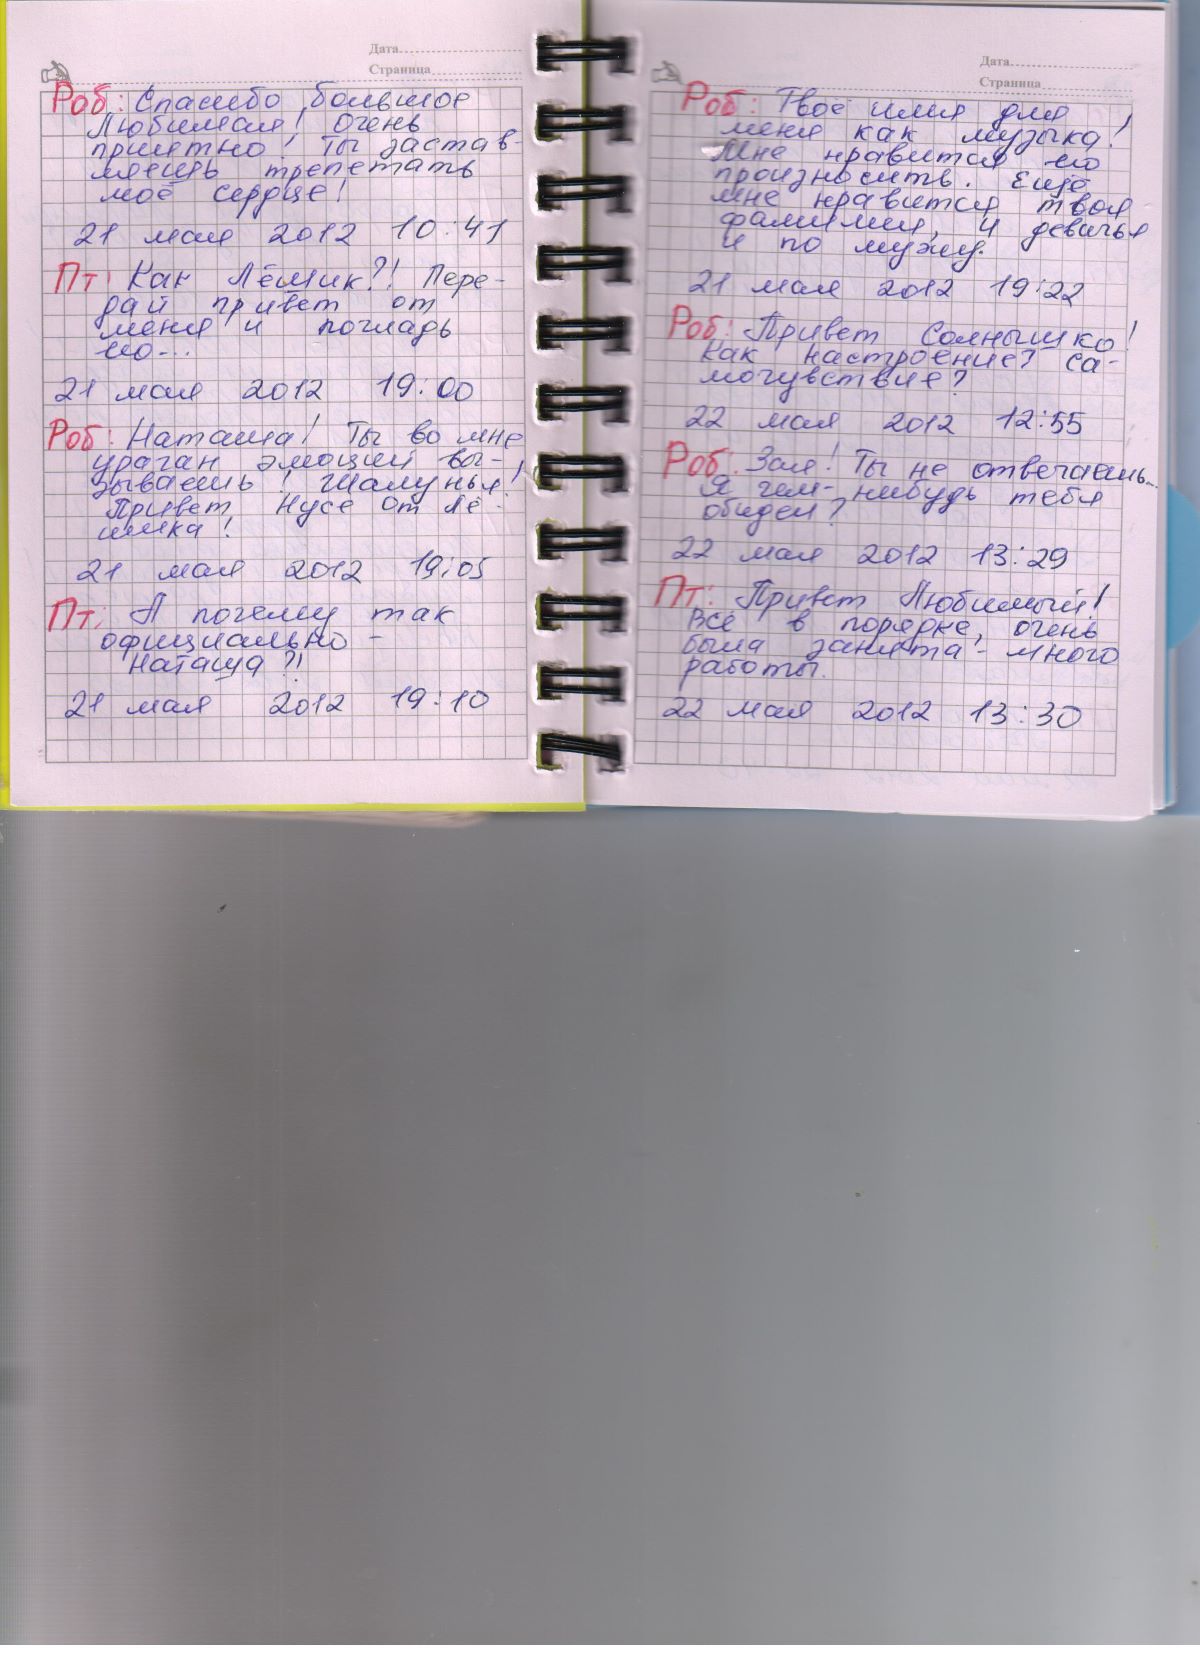 Дата
Страница
Роб: Спасибо большое
Любимая! Очень
приятно! Ты застав-
ляешь трепетать
моё сердце!
21 мая 2012 10:41
Пт: Как Лёмик?! Пере-
дай привет от
меня и погладь
его...
21 мая 2012 19:00
Роб: Наташа! Ты во мне
ураган эмоций вы-
зываешь! Шалунья!
Привет Нусе от Лё-
мика!
21 мая 2012 19:05
Пт: А почему так
официально -
Наташа?!
21 мая 2012 19:10
Дата
Страница
Роб: Твоё имя для
меня как музыка!
Мне нравится его
произносить. Ещё
мне нравится твоя
фамилия, и девичья
и по мужу.
21 мая 2012 19:22
Роб: Привет Солнышко!
Как настроение? Са-
мочувствие?
22 мая 2012 12:55
Роб: Зая! Ты не отвечаешь...
Я чем-нибудь тебя
обидел?
22 мая 2012 13:29
Пт: Привет Любимый!
Всё в порядке, очень
была занята - много
работы.
22 мая 2012 13:30